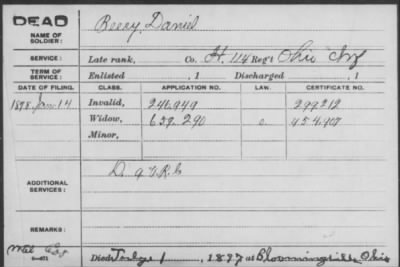 DEAD
NAME OF SOLDIER: Beery, Daniel
SERVICE: Late rank, Co. H. 114 Reg't Ohio Inf
TERM OF SERVICE: Enlisted , 1 Discharged , 1
DATE OF FILING. CLASS. APPLICATION NO. LAW. CERTIFICATE NO.
Invalid, 246949 299212
1898 Jan 14 Widow, 659.290 454.907
Minor,
ADDITIONAL SERVICES: D.
REMARKS:
Died 1, 1897 at Bloomingville Ohio